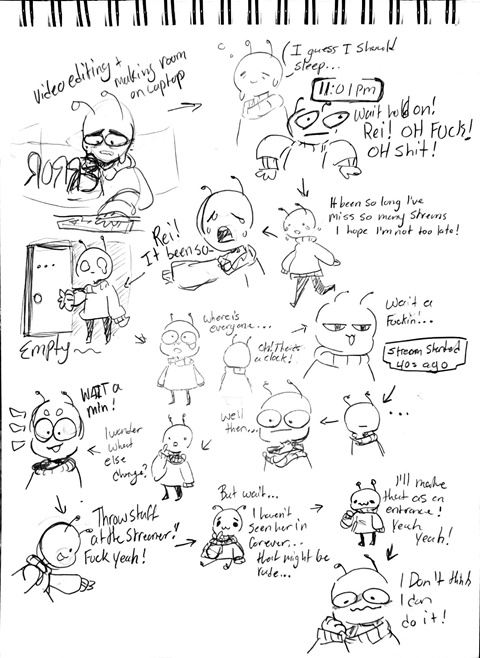 Video editing +
making room
on Laptop
ERROR
I guess I should
sleep...
11:01 pm
Wait hold on!
Rei! OH FUCK!
OH shit!
It been so long I've
miss so many streams
I hope I'm not too late!
Rei!
It been so-
...
Empty~
Where is
everyone...
Oh! There's
a clock!
Wait a
Fuckin!...
Stream Started
40s ago
...
Well
then...
I wonder
what
else
change?
WAIT a
min!
Throw stuff
at the Streamer!
Fuck Yeah!
But wait...
I haven't
seen her in
forever...
that might be
rude...
I'll make
that as an
entrance!
Yeah
Yeah!
I Don't think
I can
do it!